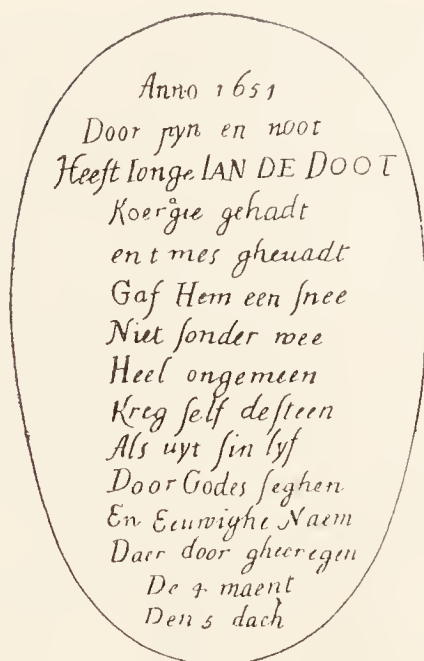 Anno 1651
Door pyn en noot
Heeft Ionge IAN DE DOOT
Koergie gehadt
en t mes gheuadt
Gaf Hem een ſnee
Niet ſonder wee
Heel ongemeen
Kreg ſelf deſteen
Als uyt ſin lyf
Door Godes ſeghen
En Eeuwighe Naem
Daer door gheeregen
De 4 maent
Den 5 dach